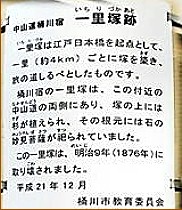 いちりづかあと
中山道桶川宿 一里塚跡
一里塚は江戸日本橋を起点として、
一里(約4km)ごとに塚を築き、
旅の道しるべとしたものです。
桶川宿の一里塚は、この付近の
中山道の両側にあり、塚の上には
杉が植えられ、その根元には石の
妙見菩薩が祀られていました。
この一里塚は、明治9年(1876年)に
取り壊されました。
平成21年12月
桶川市教育委員会